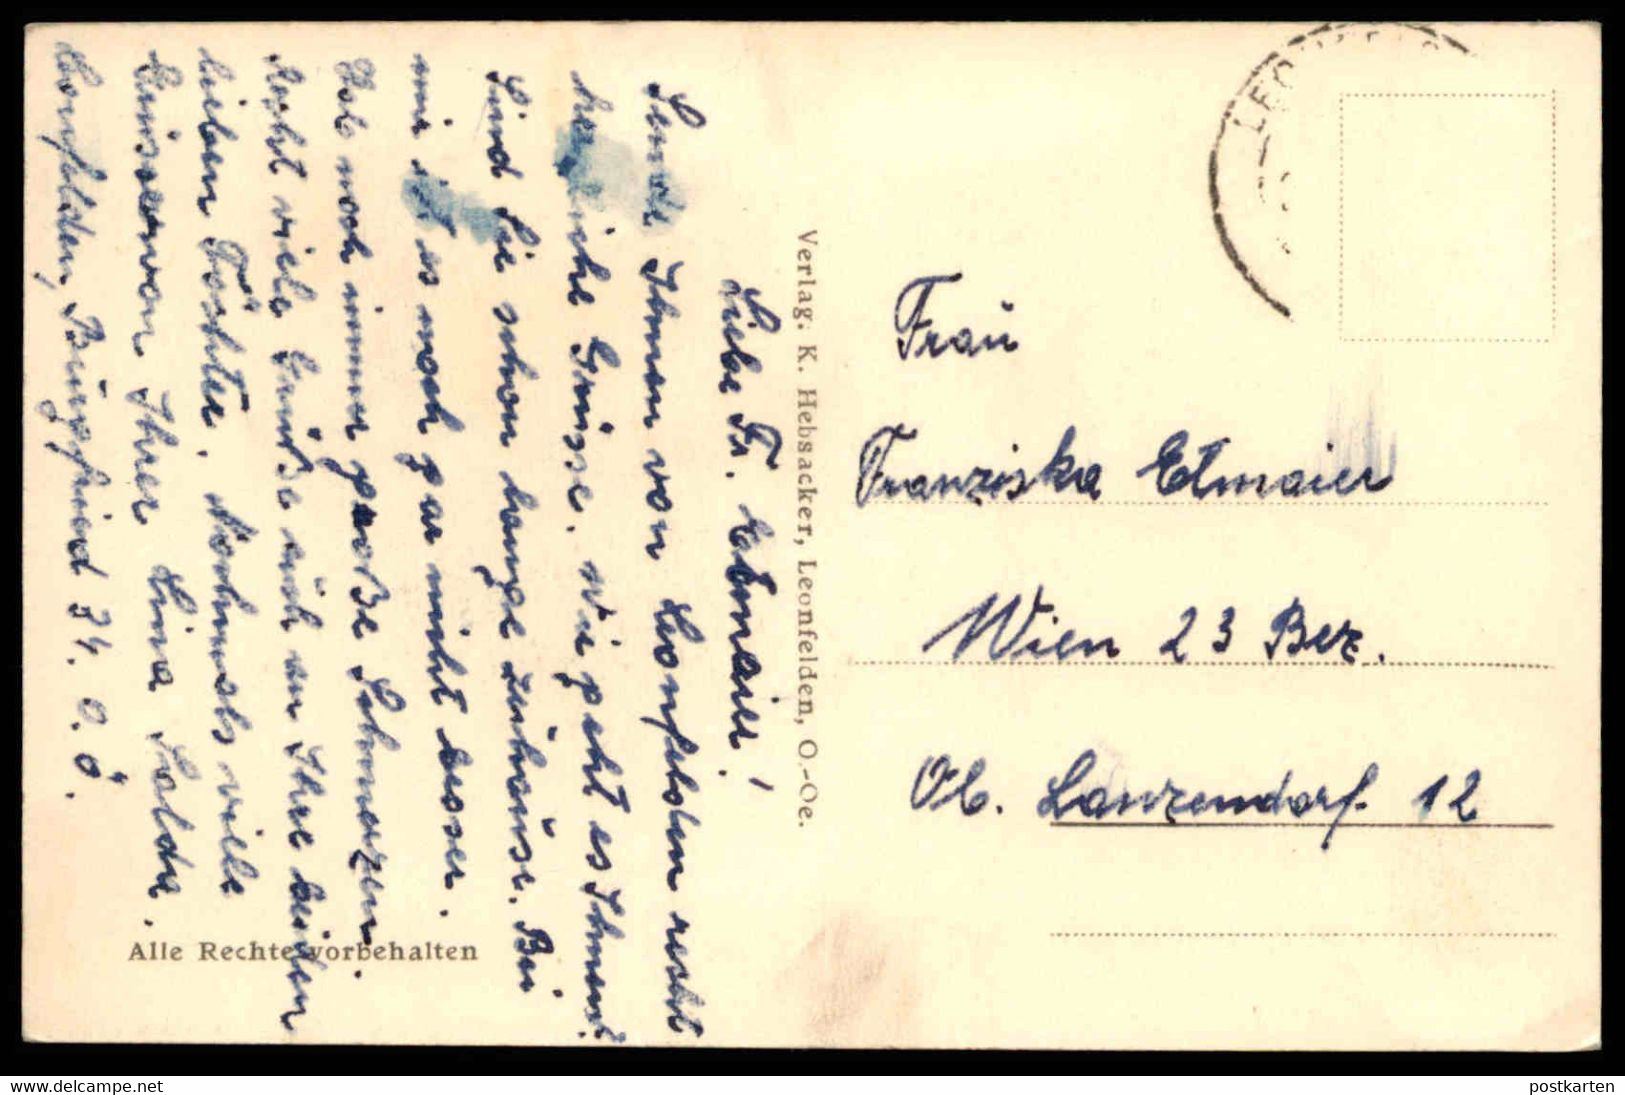 Liebe Fr. Etmaier!
Sende Ihnen von Leonfeldn recht
herzliche Grüsse. Wie geht es Ihnen?
Sind Sie schon lange zuhause. Bei
mir ist es noch gar nicht besser.
Hab noch immer große Schmerzen.
Recht viele Grüße auch an Ihre beiden
lieben Töchter. Nochmals viele
Grüsse von Ihrer Lina
Leonfelden, Burgfried 34. O. Ö.
Alle Rechte vorbehalten
Verlag. K. Hebsacker, Leonfelden, O.-Oe.
Frau
Franziska Etmaier
Wien 23 Bez.
Ob. Lanzendorf 12
Welcome at delcampe.net
postkarten